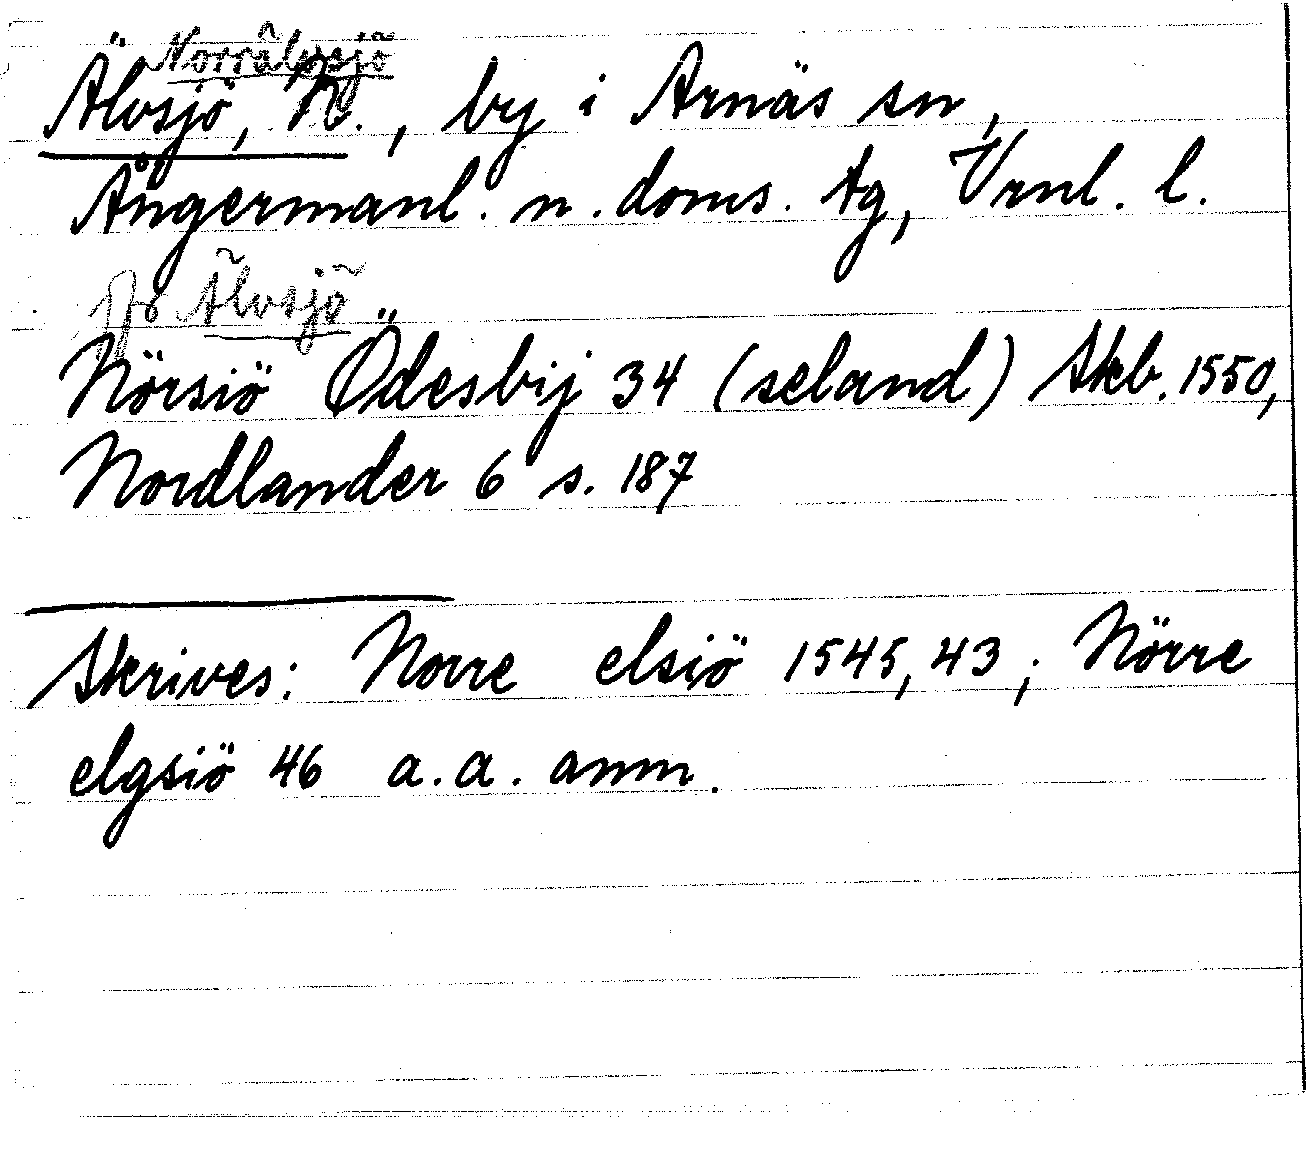 Norrälvsjö
Älvsjö, N., by i Arnäs sn,
Ångermanl. n. doms. tg, Vrnl. l.
Jfr Älvsjö
Nörsiö Ödesbij 34 (seland) Skb. 1550,
Nordlander 6 s. 187
Skrives: Norre elsiö 1545, 43; Nörre
elgsiö 46 a.a. anm.